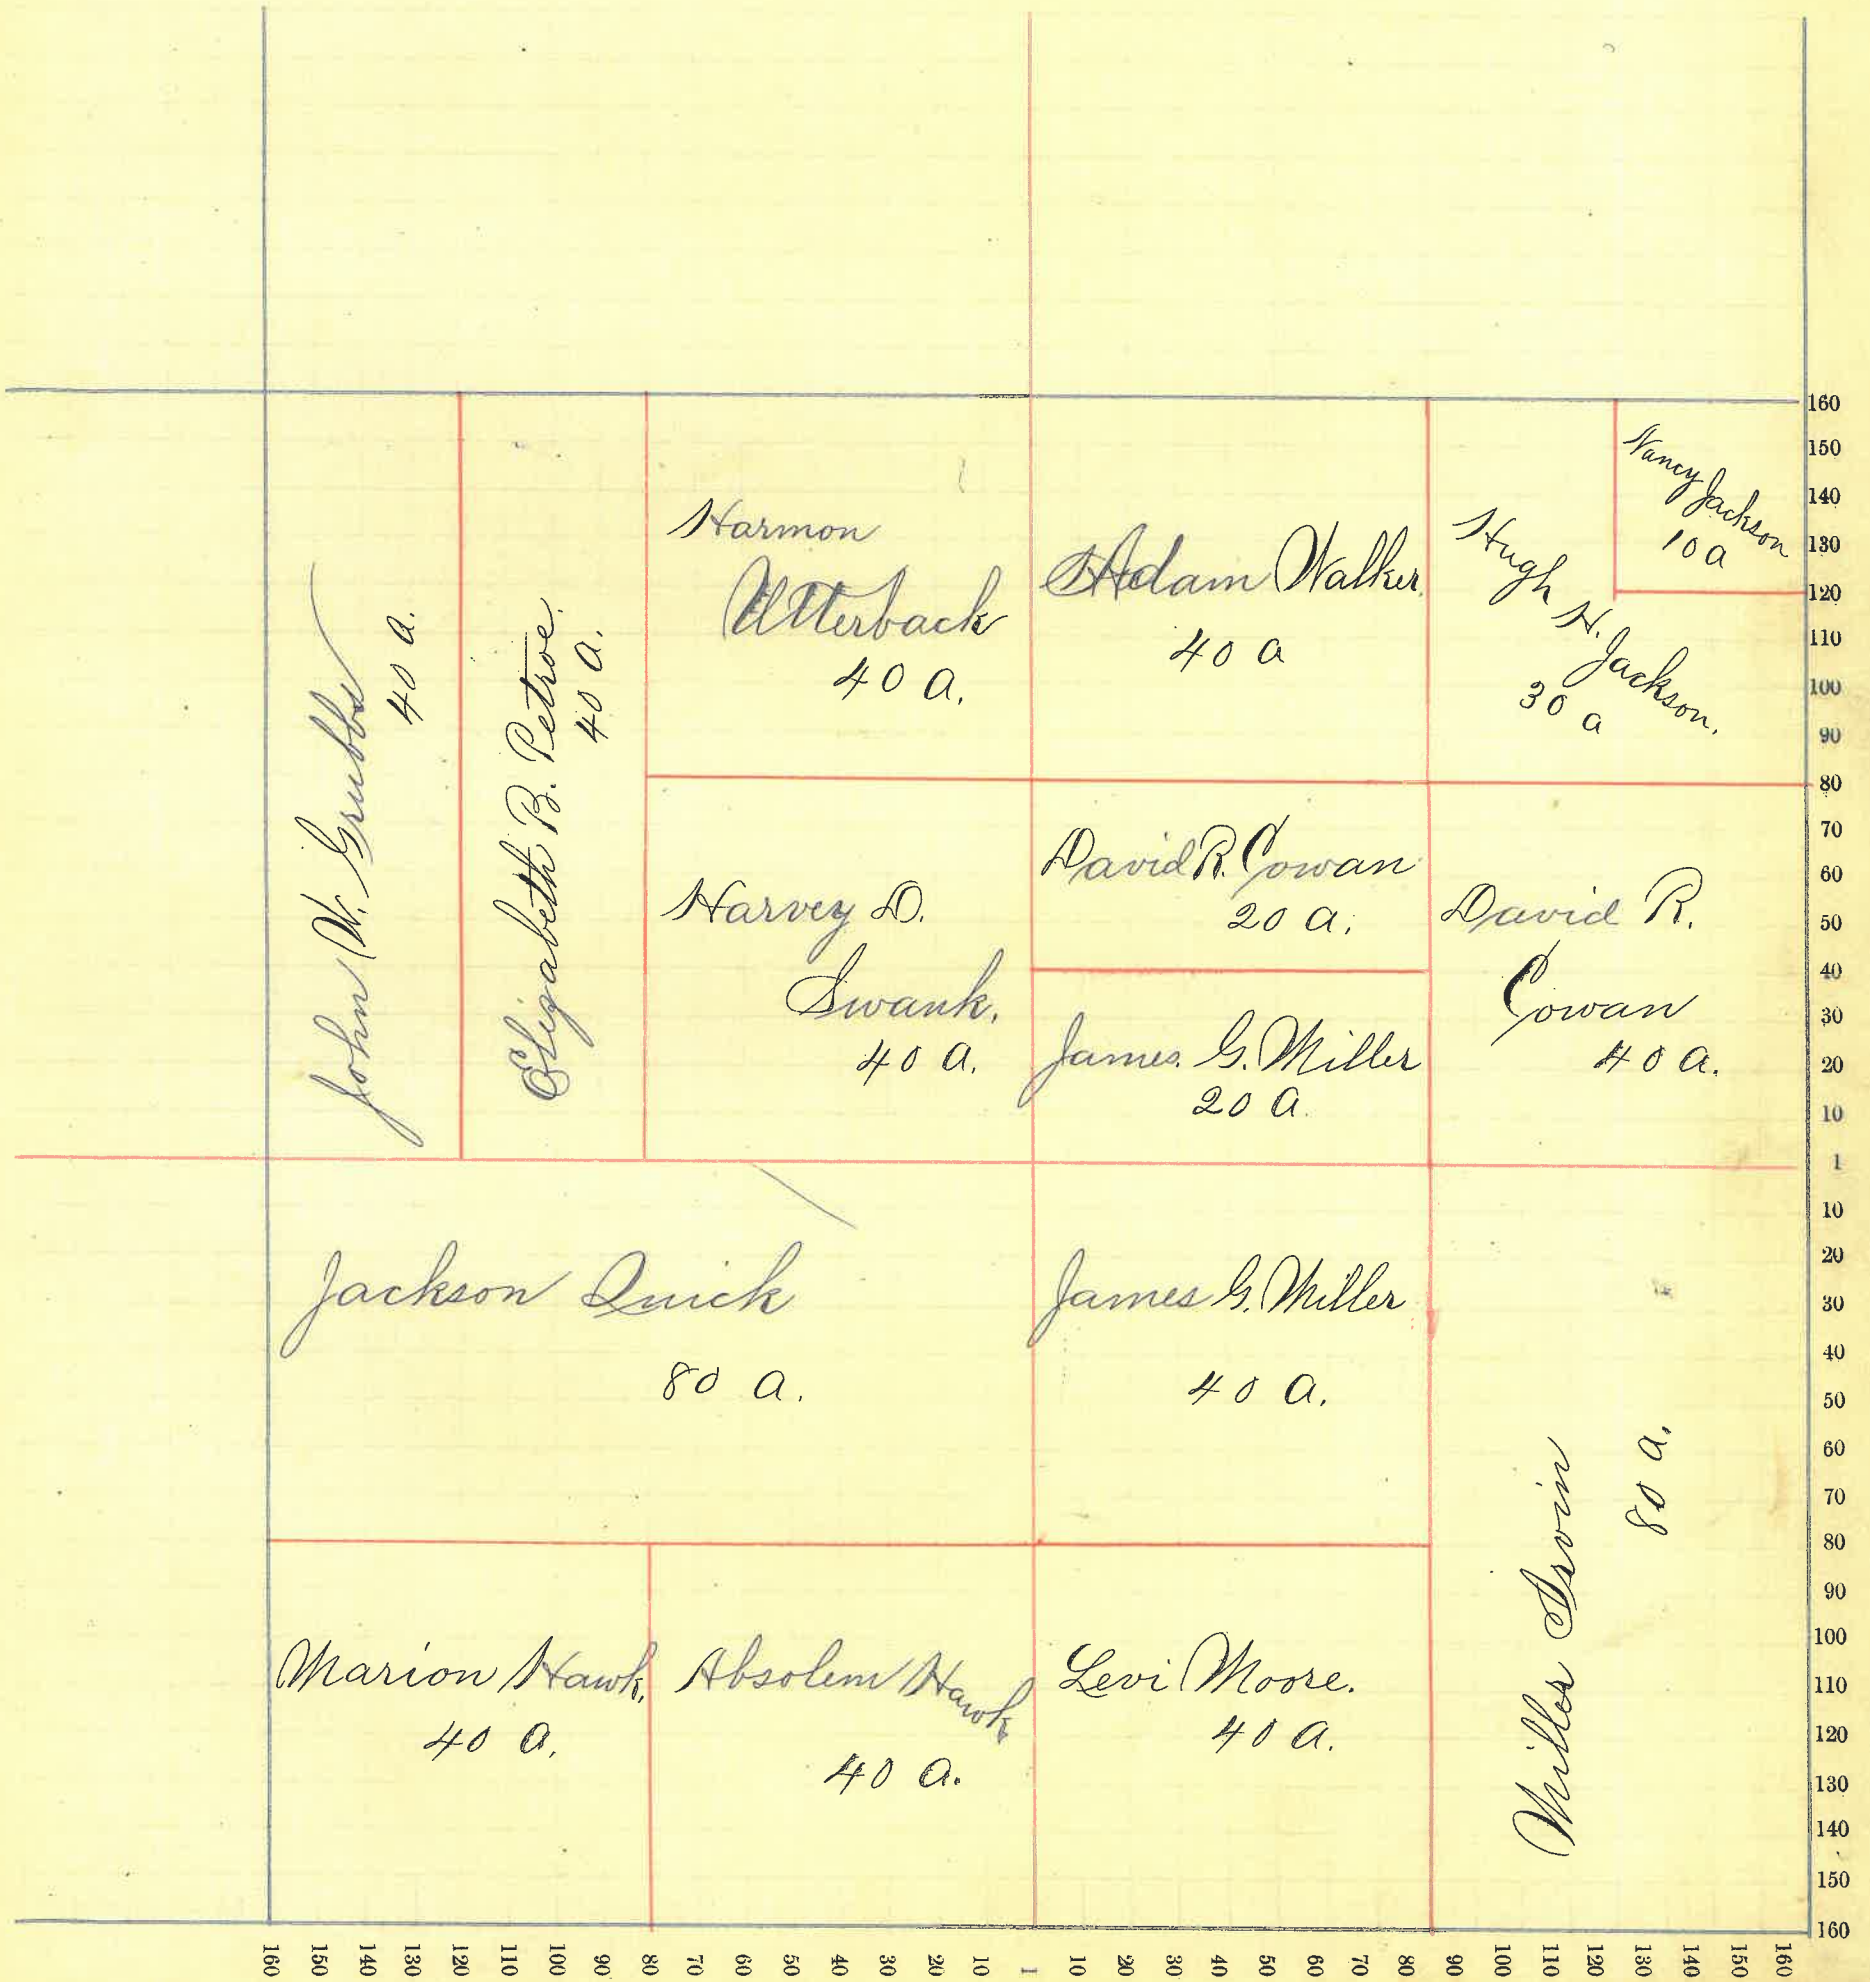 John W. Grubbs
40 a.
Elizabeth B. Petroe.
40 a.
Harmon
Utterback
40 a.
Adam Walker.
40 a
Hugh H. Jackson.
30 a
Nancy Jackson
10 a
Harvey D.
Swank.
40 a.
David R. Cowan
20 a.
James. G. Miller
20 a.
David R.
Cowan
40 a.
Jackson Quick
80 a.
James G. Miller
40 a.
Miller Irvin
80 a.
Marion Hawk.
40 a.
Absolem Hawk
40 a.
Levi Moore.
40 a.
160
150
140
130
120
110
100
90
80
70
60
50
40
30
20
10
1
10
20
30
40
50
60
70
80
90
100
110
120
130
140
150
160
160 150 140 130 120 110 100 90 80 70 60 50 40 30 20 10 1 10 20 30 40 50 60 70 80 90 100 110 120 130 140 150 160